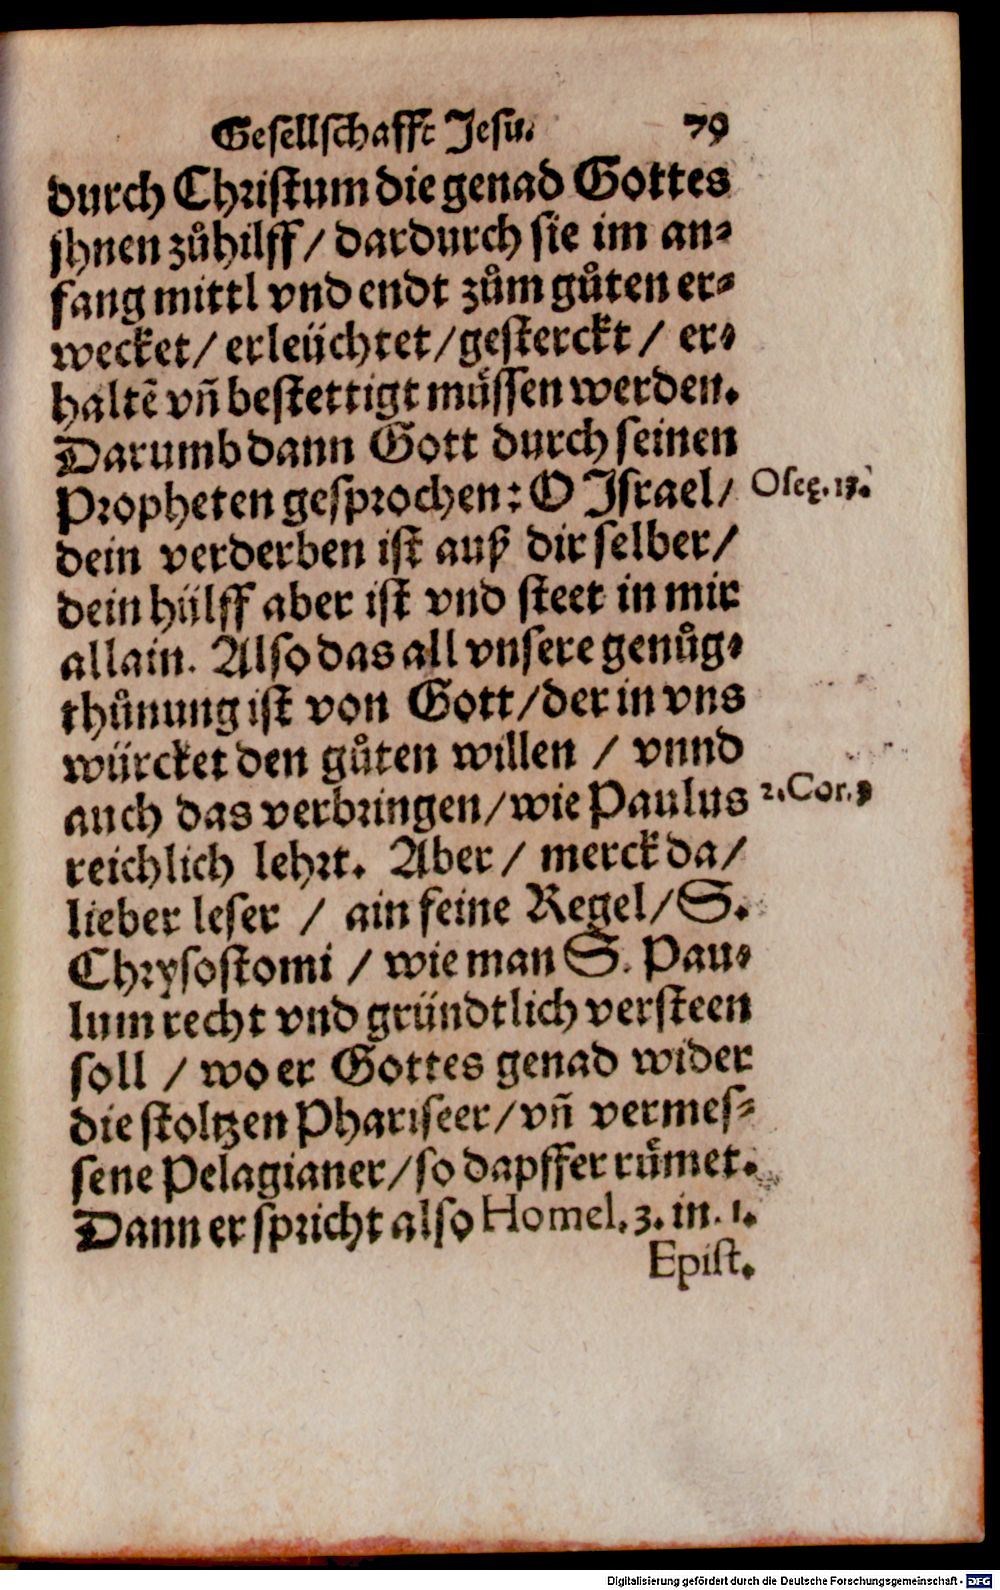 Gesellschafft Jesu. 79
durch Christum die genad Gottes
jhnen zůhilff / dardurch sie im an-
fang mittl vnd endt zům gůten er-
wecket / erleüchtet / gesterckt / er-
haltē vñ bestettigt müssen werden.
Darumb dann Gott durch seinen
Propheten gesprochen: O Israel /
Oseę. 13.
dein verderben ist auß dir selber /
dein hülff aber ist vnd steet in mir
allain. Also das all vnsere genůg-
thůnung ist von Gott / der in vns
würcket den gůten willen / vnnd
auch das verbringen / wie Paulus
2. Cor. 3
reichlich lehrt. Aber / merck da /
lieber leser / ain feine Regel / S.
Chrysostomi / wie man S. Pau-
lum recht vnd gründtlich versteen
soll / wo er Gottes genad wider
die stoltzen Phariseer / vñ vermes-
sene Pelagianer / so dapffer rümet.
Dann er spricht also Homel. 3. in. 1.
Epist.
Digitalisierung gefördert durch die Deutsche Forschungsgemeinschaft - DFG